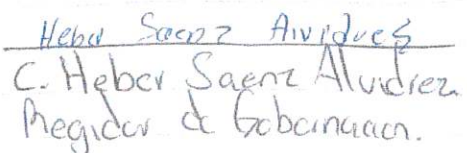 Heber Saenz Alvidrez
C. Heber Saenz Alvidrez
Regidor de Gobernacion.